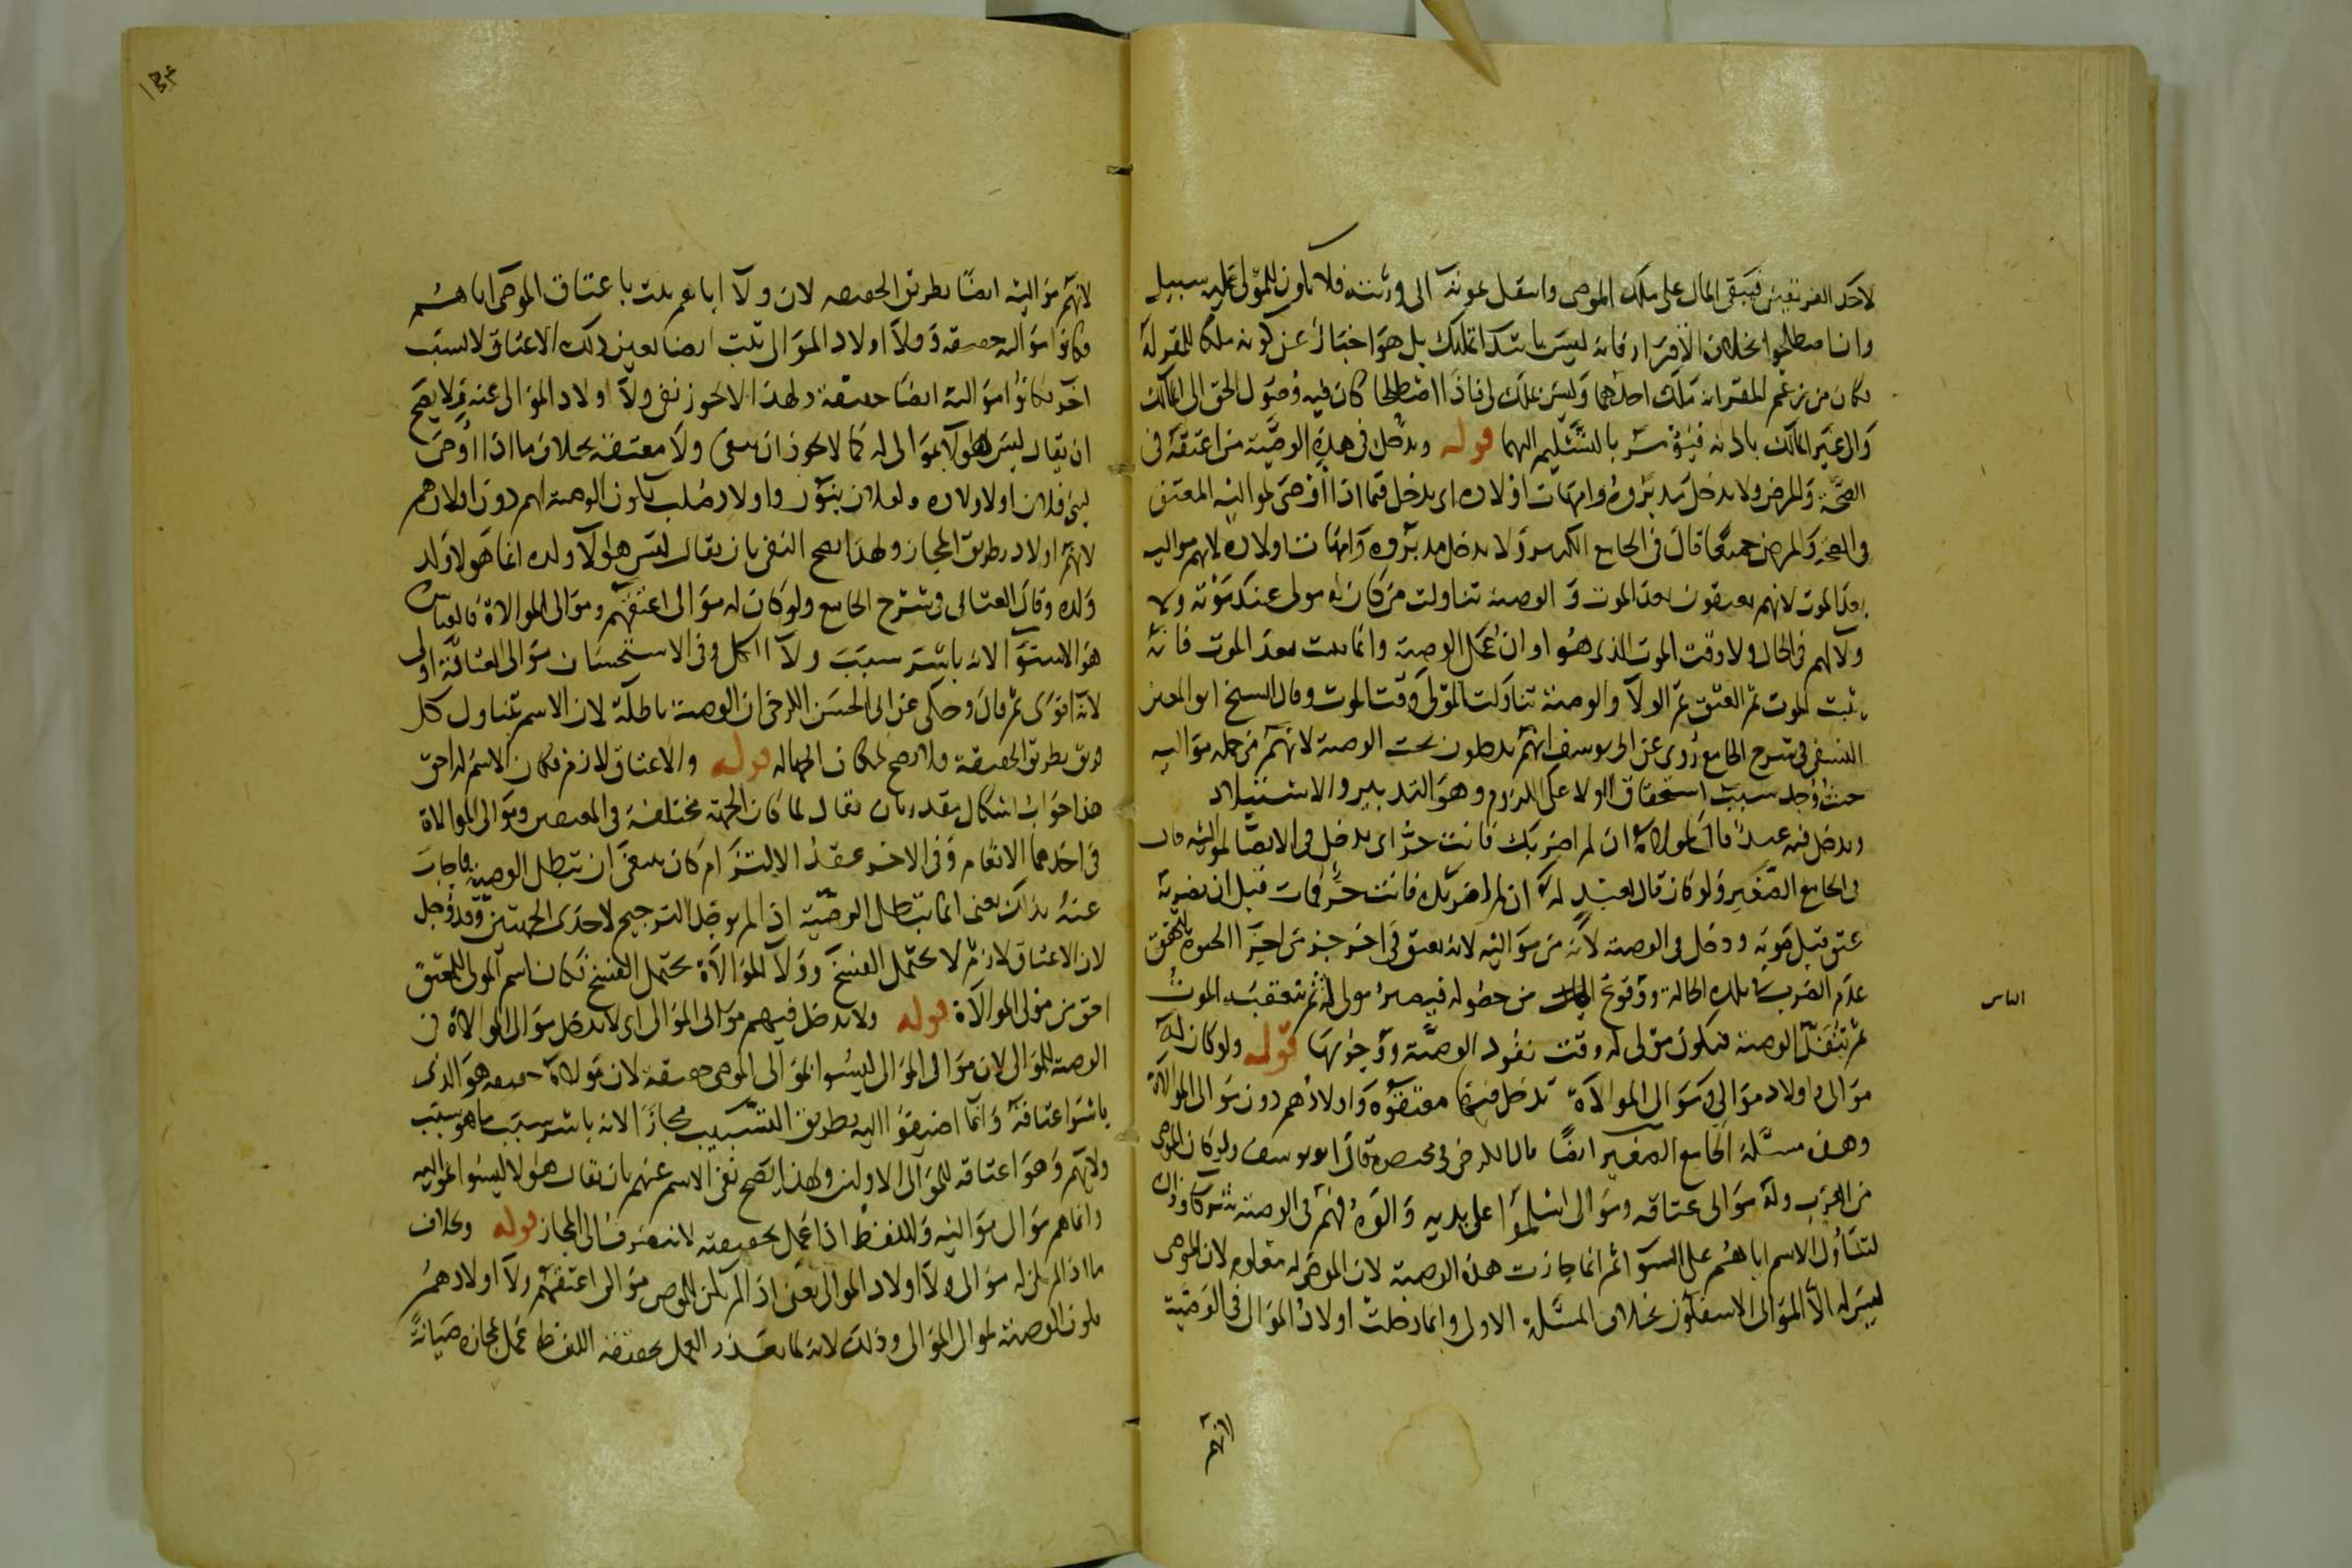 لاحد الفريقين فيبقى المال على ملك الموصى وانتقل بموته الى ورثته فلا يكون للمولى عليه سبيل
وان اصطلحوا بخلاف الاقرار فانه ليس بابتدا تمليك بل هو اخبار عن كونه ملكا للمقر له
فكان من زعم المقر انه ملك احدهما وليس بملك لى فاذا اصطلحا كان فيه وصول الحق الى المالك
والى غير المالك باذنه فيؤمر بالتسليم اليهما قوله ويدخل فى هذه الوصية من اعتقه فى
الصحة والمرض ولا يدخل مدبروه وامهات اولاده اى يدخل فيما اذا اوصى لمواليه المعتق
فى الصحة والمرض جميعا قال فى الجامع الكبير ولا يدخل مدبروه وامهات اولاده لانهم مواليه
بعد الموت لانهم يعتقون بعد الموت والوصية تناولت من كان له مولى عند موته ولا
ولا لهم فى الحال ولا وقت الموت الذى هو اوان عمل الوصية وانما يثبت بعد الموت فانه
يثبت الموت ثم العتق ثم الولا والوصية تناولت المولى وقت الموت وقال الشيخ ابو المعين
النسفى فى شرح الجامع روى عن ابى يوسف انهم يدخلون تحت الوصية لانهم من جملة مواليه
حيث وجد سبب استحقاق الولا على اللزوم وهو التدبير والاستيلاد
ويدخل فيه عبد قال له مولاه ان لم اضربك فانت حر اى يدخل فى الايصا لمواليه قال
فى الجامع الصغير ولو كان قال لعبد له ان لم اضربك فانت حر فمات قبل ان يضربه
عتق قبل موته ودخل فى الوصية لانه من مواليه لانه يعتق فى اخر جز من اجزا الحيوة لتحقق
عدم الضرب فى تلك الحالة ووقوع الياس من حصوله فيصير مولى له ثم يتعقبه الموت
ثم تنفذ الوصية فيكون مولى له وقت نفوذ الوصية ووجوبها قوله ولو كان له
موالى واولاد موالى وموالى الموالاة يدخل فيها معتقوه واولادهم دون موالى الموالاة
وهذه مسئلة الجامع الصغير ايضا قال الكرخى فى مختصره قال ابو يوسف ولو كان الموصى
من العرب وله موالى عتاقه وموالى اسلموا على يديه والوه فهم فى الوصية شركا وذلك
لتناول الاسم اياهم على السوا ثم انما جازت هذه الوصية لان الموصى له معلوم لان الموصى
ليس له الا الموالى الاسفلون بخلاف المسئلة الاولى وانما دخلت اولاد الموالى فى الوصية
الياس
لانهم
لانهم مواليه ايضا بطريق الحقيقة لان ولا ابائهم يثبت باعتاق الموصى اياهم
فكانوا مواليه حقيقة وولا اولاد الموالى يثبت ايضا بعين ذلك الاعتاق لا لسبب
اخر فكانوا مواليه ايضا حقيقة ولهذا لا يجوز نفى ولا اولاد الموالى عنه ولا يصح
ان يقال ليس هولا بموالى له كما لا يجوز ان ينفى ولا معتقه بخلاف ما اذا اوصى
لبنى فلان او اولاده ولفلان بنون واولاد صلب يكون الوصية لهم دون اولادهم
لانهم اولاد بطريق المجاز ولهذا يصح النفى بان يقال ليس هولا ولده انما هو لا ولد
ولده وقال العتابى فى شرح الجامع ولو كان له موالى اعتقهم وموالى الموالاة فالقياس
هو الاستوا لانه باشر سبب ولا الكل وفى الاستحسان موالى العتاقة اولى
لانه اقوى ثم قال وحكى عن ابى الحسن الكرخى ان الوصية باطلة لان الاسم تناول كل
فريق بطريق الحقيقة فلا يصح لمكان الجهالة قوله والاعتاق لازم فكان الاسم له احق
هذا جواب اشكال مقدر بان يقال لما كان الجهة مختلفة فى المعتقين وموالى الموالاة
فى احدهما الانعام وفى الاخر عقد الالتزام كان ينبغى ان تبطل الوصية فاجاب
عنه بذاك يعنى انما تبطل الوصية اذا لم يوجد الترجيح لاحدى الجهتين وقد وجد
لان الاعتاق لازم لا يحتمل الفسخ وولا الموالاة يحتمل الفسخ فكان اسم المولى للمعتق
احق من مولى الموالاة قوله ولا يدخل فيهم موالى الموالى اى لا يدخل موالى الموالاة فى
الوصية للموالى لان موالى الموالى ليسوا لموالى الموصى حقيقة لان مولاه حقيقة هو الذى
باشر اعتاقه وانما اضيفوا اليه بطريق التسبيب مجازا لانه باشر سبب ما هو سبب
ولائهم وهو اعتاقه للموالى الاولين ولهذا يصح نفى الاسم عنهم بان يقال هولا ليسوا مواليه
وانما هم موالى مواليه واللفظ اذا عمل بحقيقته لا ينصرف الى المجاز قوله وبخلاف
ما اذا لم يكن له موالى ولا اولاد الموالى يعنى اذا لم يكن للموصى موالى اعتقهم ولا اولادهم
يكون الوصية لموالى الموالى وذلك لانه لما تعذر العمل بحقيقة اللفظ عمل بمجازه صيانة